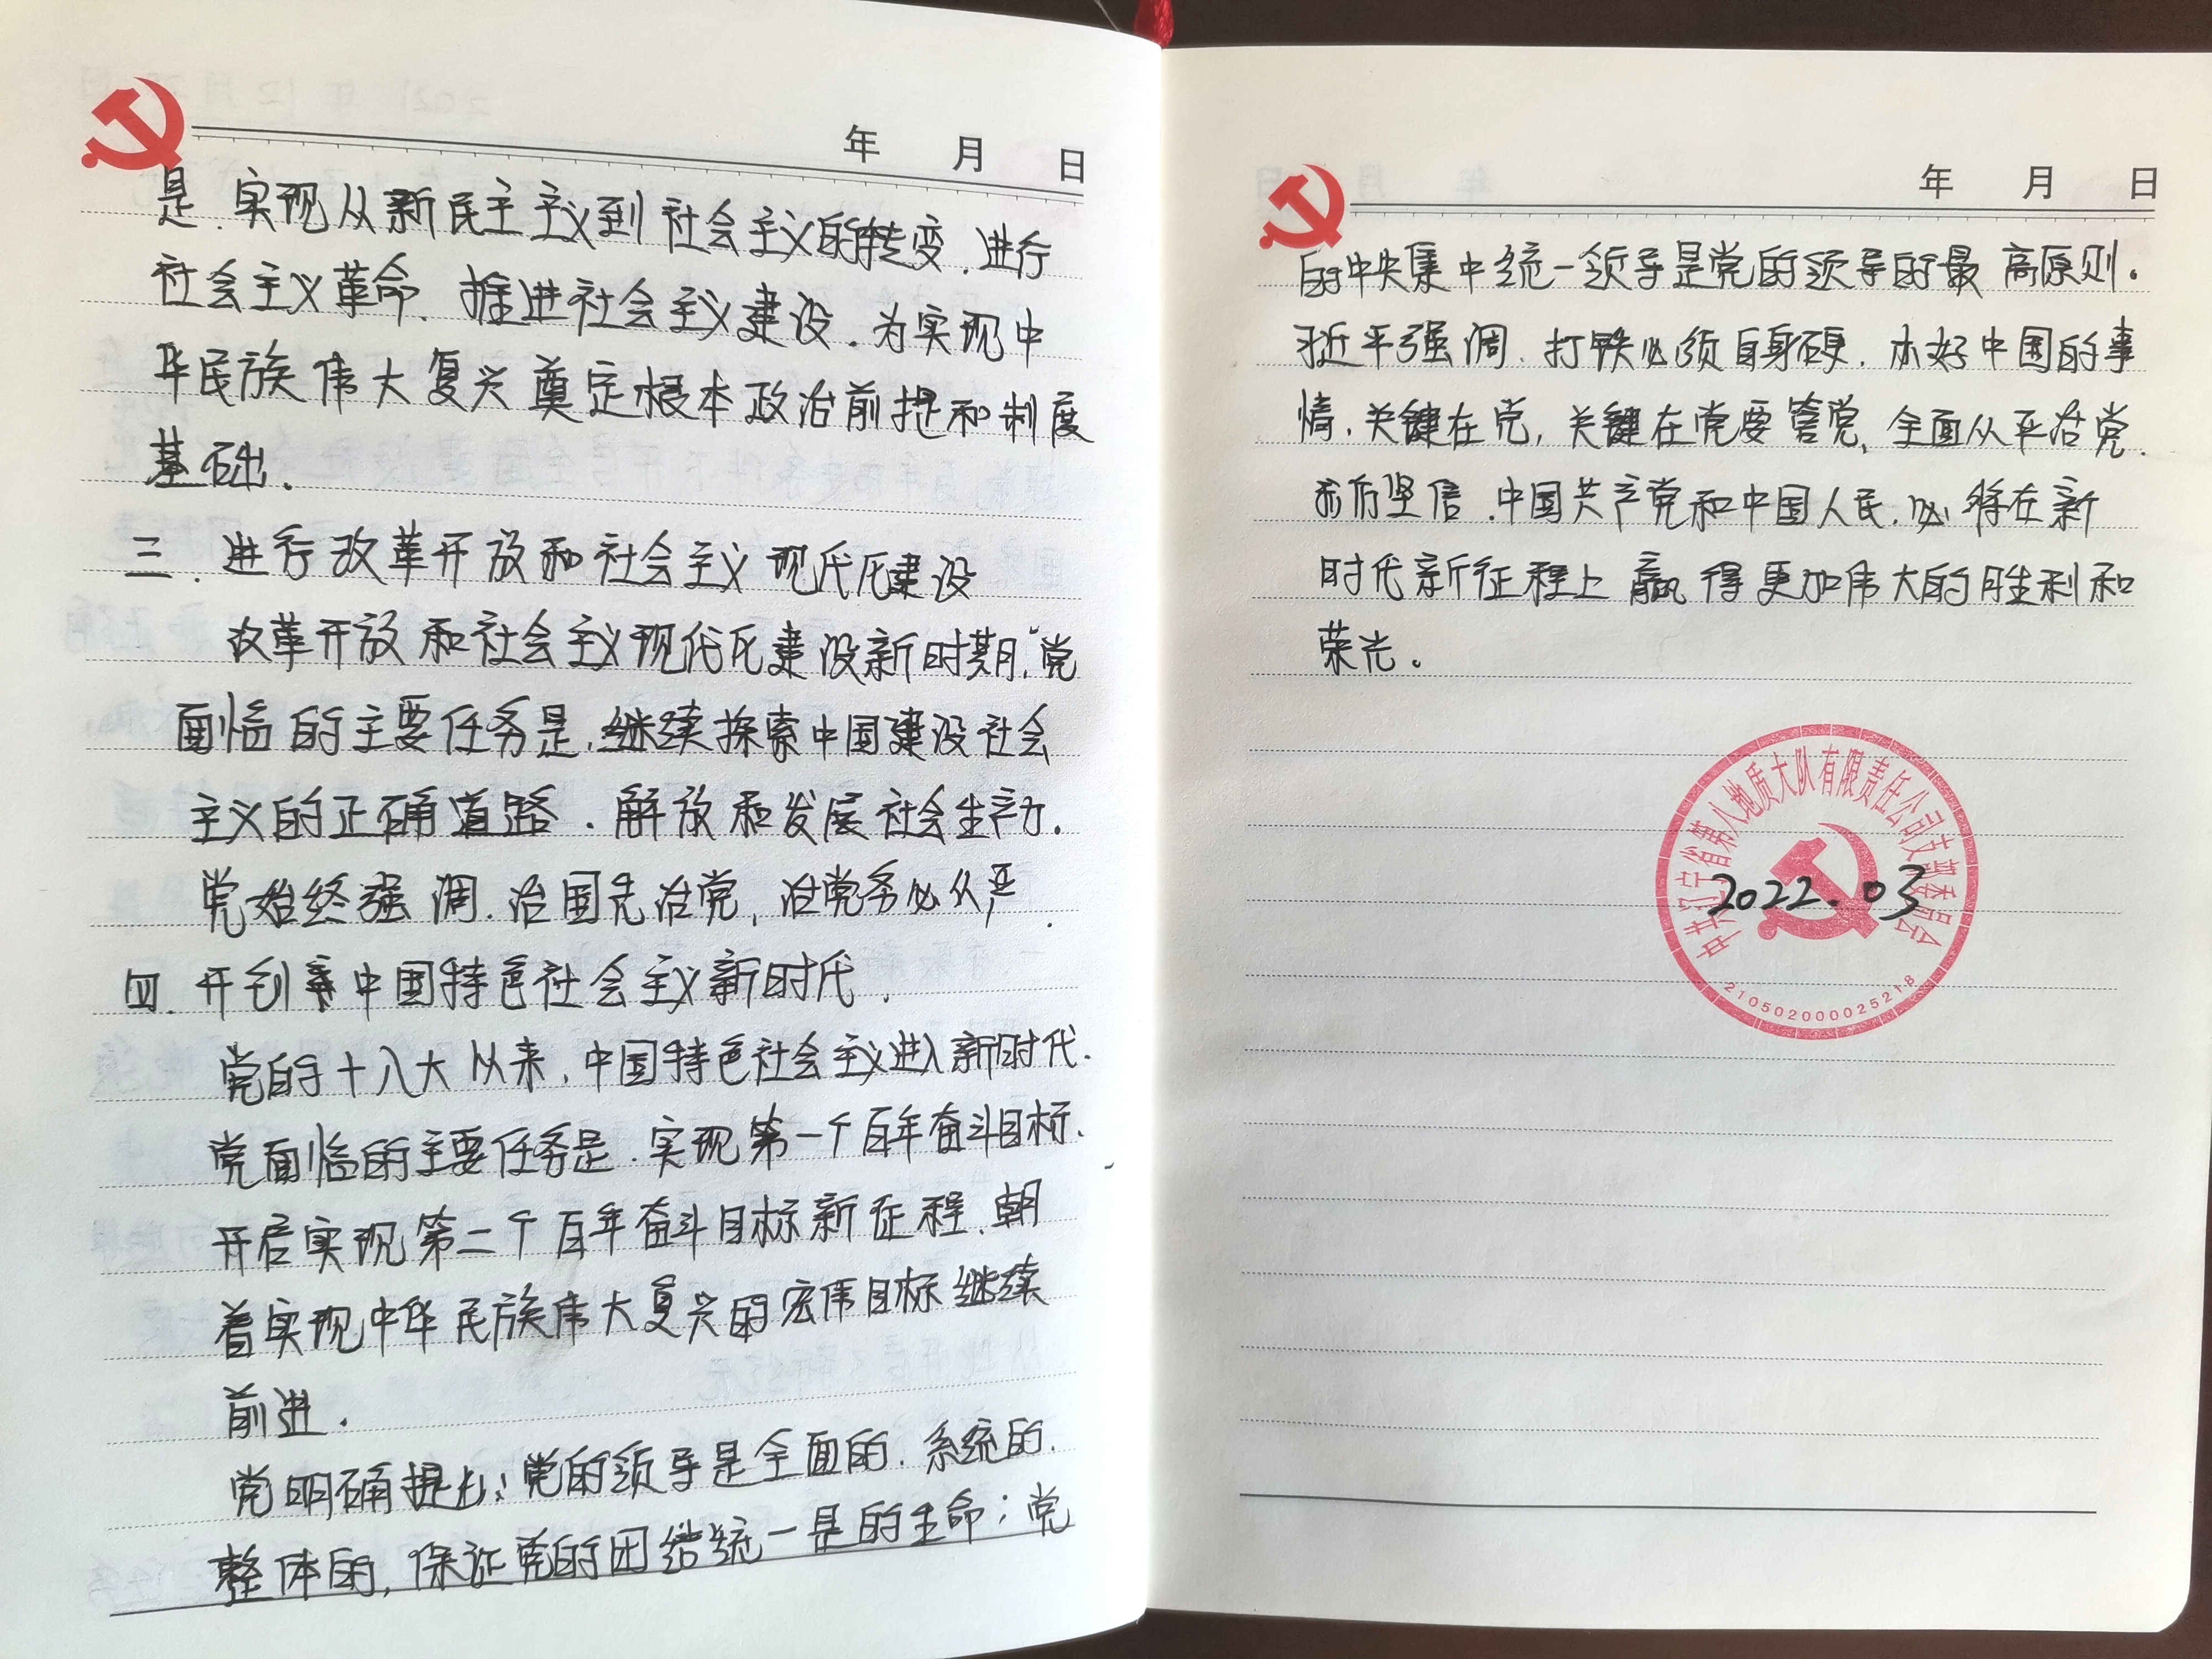 年 月 日
是.实现从新民主主义到社会主义的转变.进行
社会主义革命.推进社会主义建设.为实现中
华民族伟大复兴奠定根本政治前提和制度
基础.
三.进行改革开放和社会主义现代化建设
改革开放和社会主义现代化建设新时期,党
面临的主要任务是.继续探索中国建设社会
主义的正确道路.解放和发展社会生产力.
党始终强调.治国先治党,治党务必从严.
四.开创中国特色社会主义新时代.
党的十八大以来,中国特色社会主义进入新时代.
党面临的主要任务是.实现第一个百年奋斗目标.
开启实现第二个百年奋斗目标新征程.朝
着实现中华民族伟大复兴的宏伟目标继续
前进.
党明确提出:党的领导是全面的.系统的.
整体的,保证党的团结统一是的生命;党
年 月 日
的中央集中统一领导是党的领导的最高原则。
习近平强调.打铁必须自身硬.办好中国的事
情.关键在党,关键在党要管党、全面从严治党.
我们坚信.中国共产党和中国人民.必将在新
时代新征程上赢得更加伟大的胜利和
荣光。
中共辽宁省第八地质大队有限责任公司支部委员会
2022.03
210502000025218